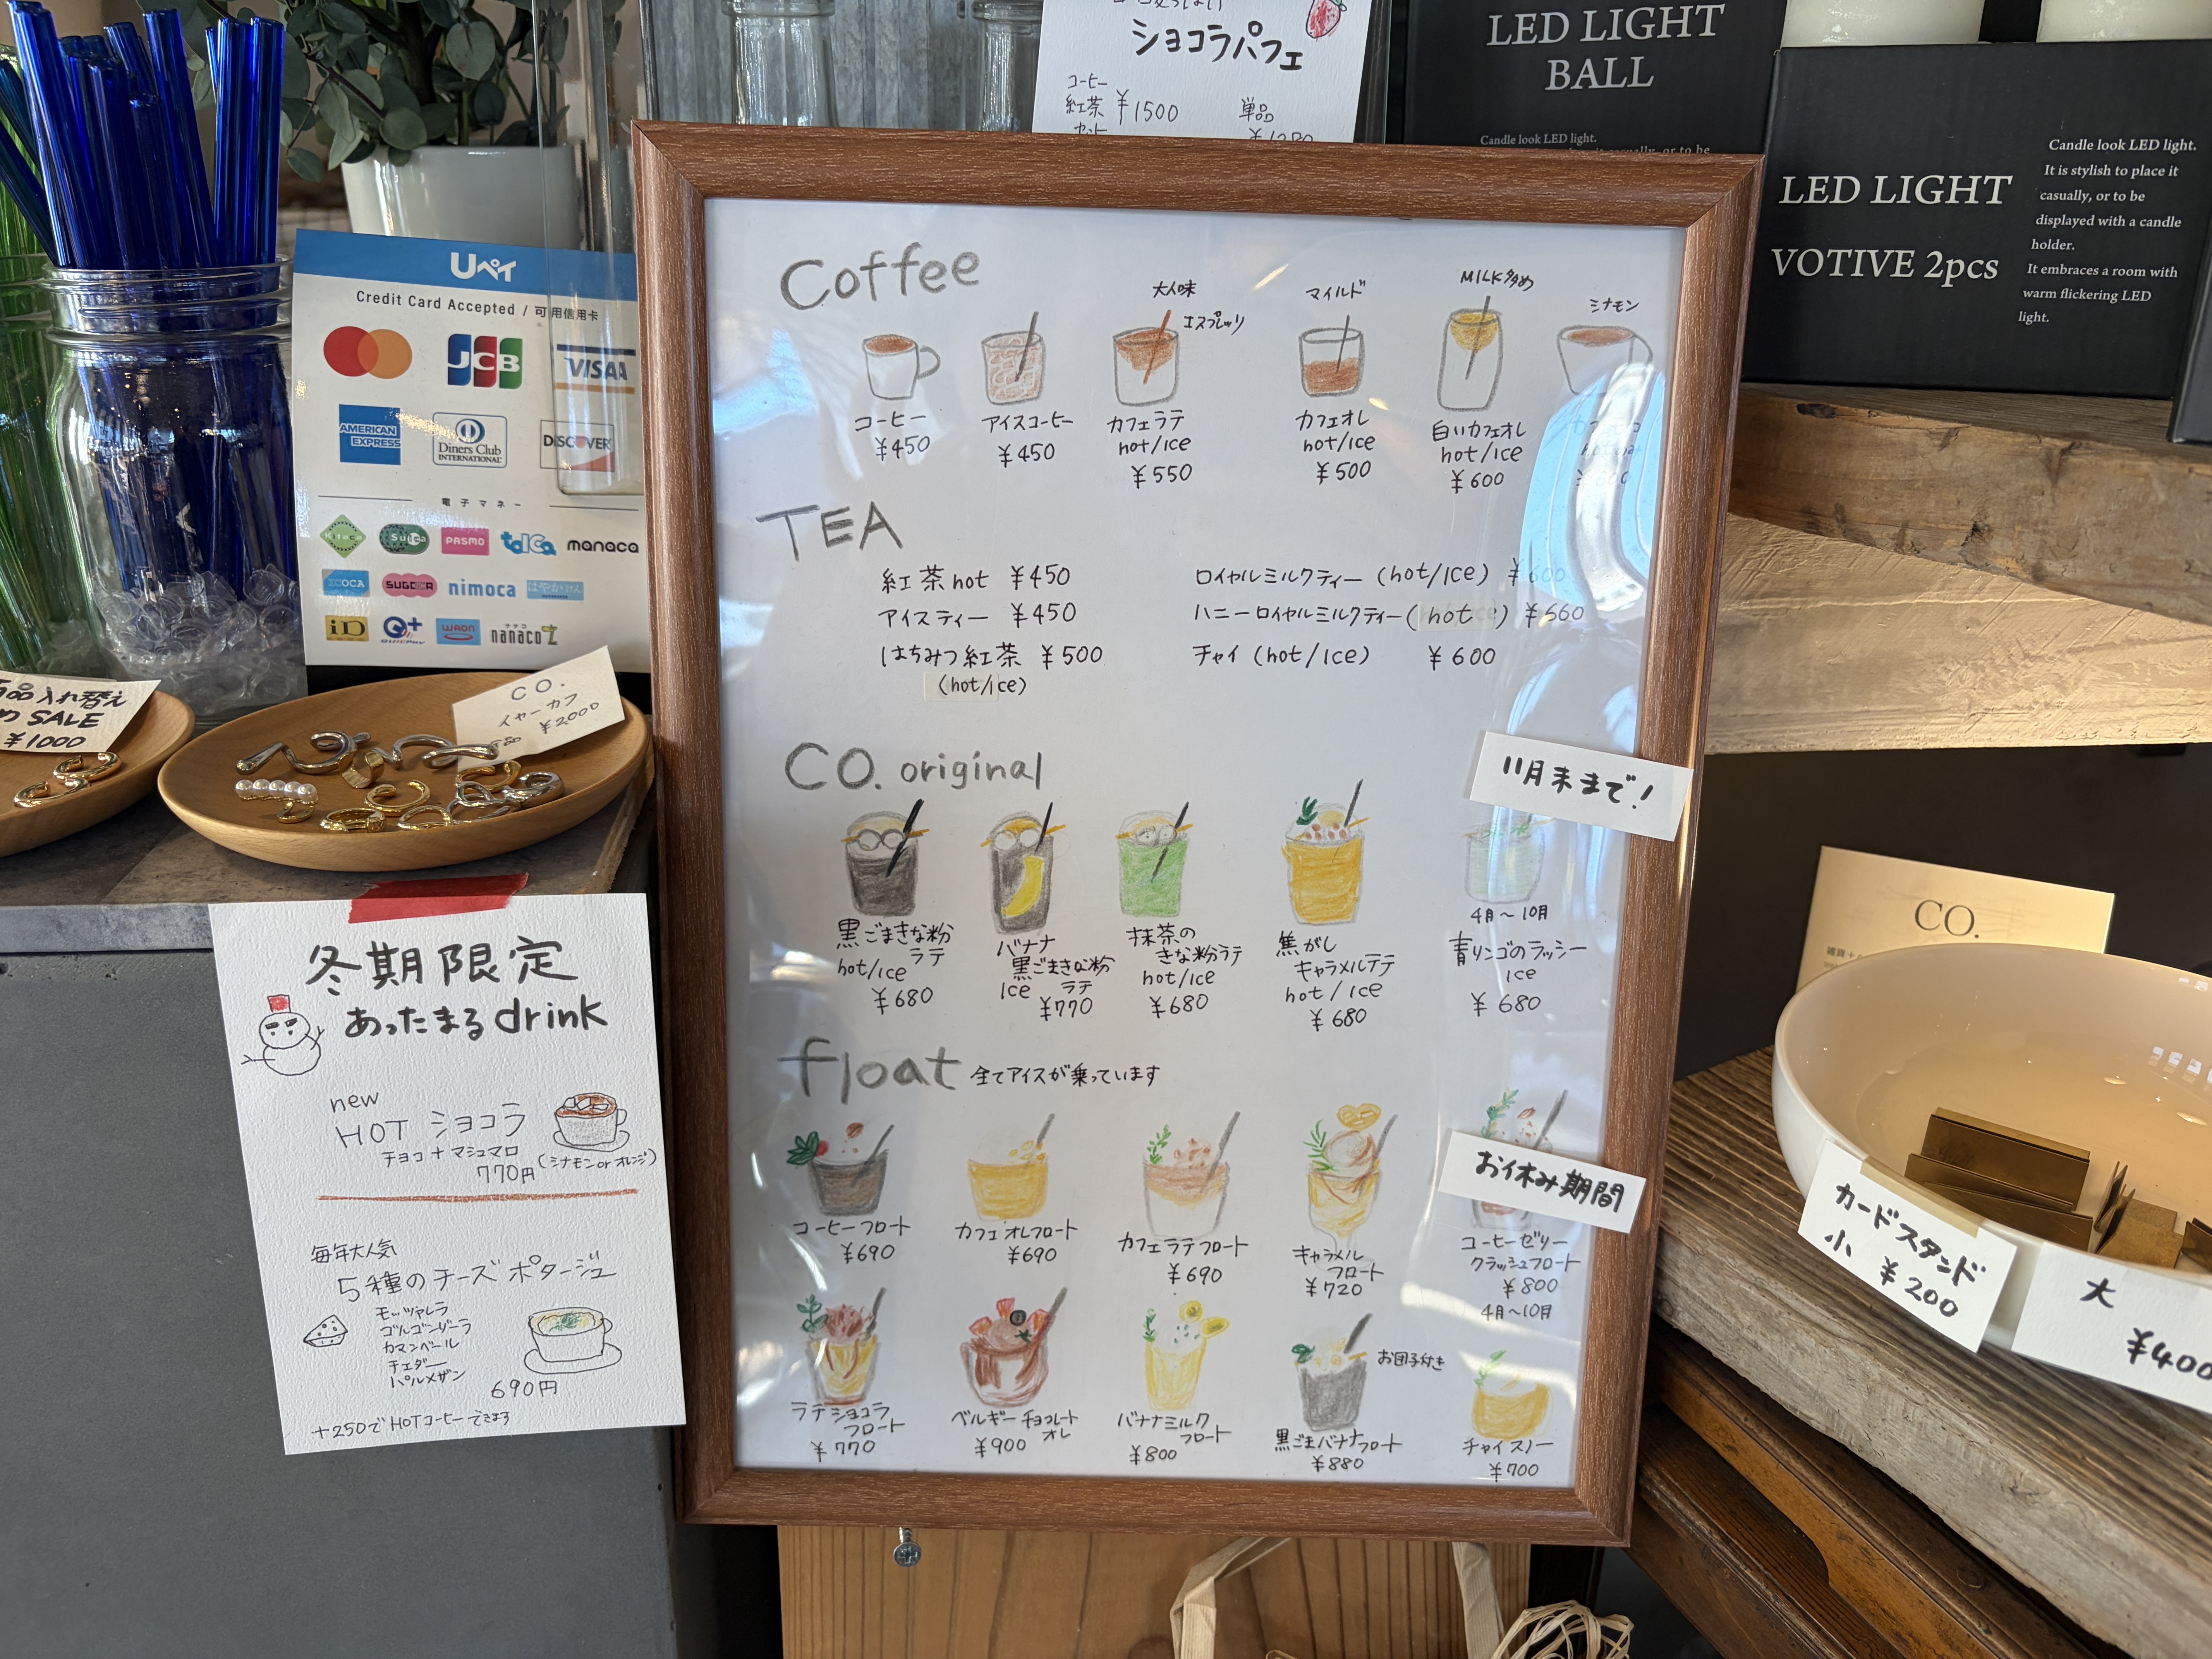 ショコラパフェ
コーヒー
紅茶 ¥1500
セット
単品
LED LIGHT
BALL
Candle look LED light.
LED LIGHT
VOTIVE 2pcs
Candle look LED light.
It is stylish to place it
casually, or to be
displayed with a candle
holder.
It embraces a room with
warm flickering LED
light.
Uペイ
Credit Card Accepted / 可用信用卡
JCB
VISA
AMERICAN EXPRESS
Diners Club
INTERNATIONAL
DISCOVER
電子マネー
Kitaca
Suica
PASMO
toica
manaca
ICOCA
SUGOCA
nimoca
はやかけん
iD
QUICPay
WAON
nanaco
入れ替え
SALE
¥1000
CO.
イヤーカフ
¥2000
冬期限定
あったまるdrink
new
HOT ショコラ
チョコ+マシュマロ
770円(シナモンorオレンジ)
毎年大人気
5種のチーズポタージュ
モッツァレラ
ゴルゴンゾーラ
カマンベール
チェダー
パルメザン
690円
+250でHOTコーヒーできます
Coffee
大人味
エスプレッソ
マイルド
MILK多め
シナモン
コーヒー
¥450
アイスコーヒー
¥450
カフェラテ
hot/ice
¥550
カフェオレ
hot/ice
¥500
白いカフェオレ
hot/ice
¥600
TEA
紅茶hot ¥450
アイスティー ¥450
はちみつ紅茶 ¥500
(hot/ice)
ロイヤルミルクティー (hot/ice) ¥600
ハニーロイヤルミルクティー(hot) ¥660
チャイ (hot/ice) ¥600
CO. original
11月末まで!
黒ごまきな粉
ラテ
hot/ice
¥680
バナナ
黒ごまきな粉
ラテ
Ice
¥770
抹茶の
きな粉ラテ
hot/ice
¥680
焦がし
キャラメルラテ
hot/ice
¥680
4月~10月
青リンゴのラッシー
ice
¥680
float 全てアイスが乗っています
コーヒーフロート
¥690
カフェオレフロート
¥690
カフェラテフロート
¥690
キャラメル
フロート
¥720
お休み期間
コーヒーゼリー
クラッシュフロート
¥800
4月~10月
ラテショコラ
フロート
¥770
ベルギーチョコレート
オレ
¥900
バナナミルク
フロート
¥800
お団子付き
黒ごまバナナフロート
¥880
チャイスノー
¥700
CO.
カードスタンド
小 ¥200
大
¥400